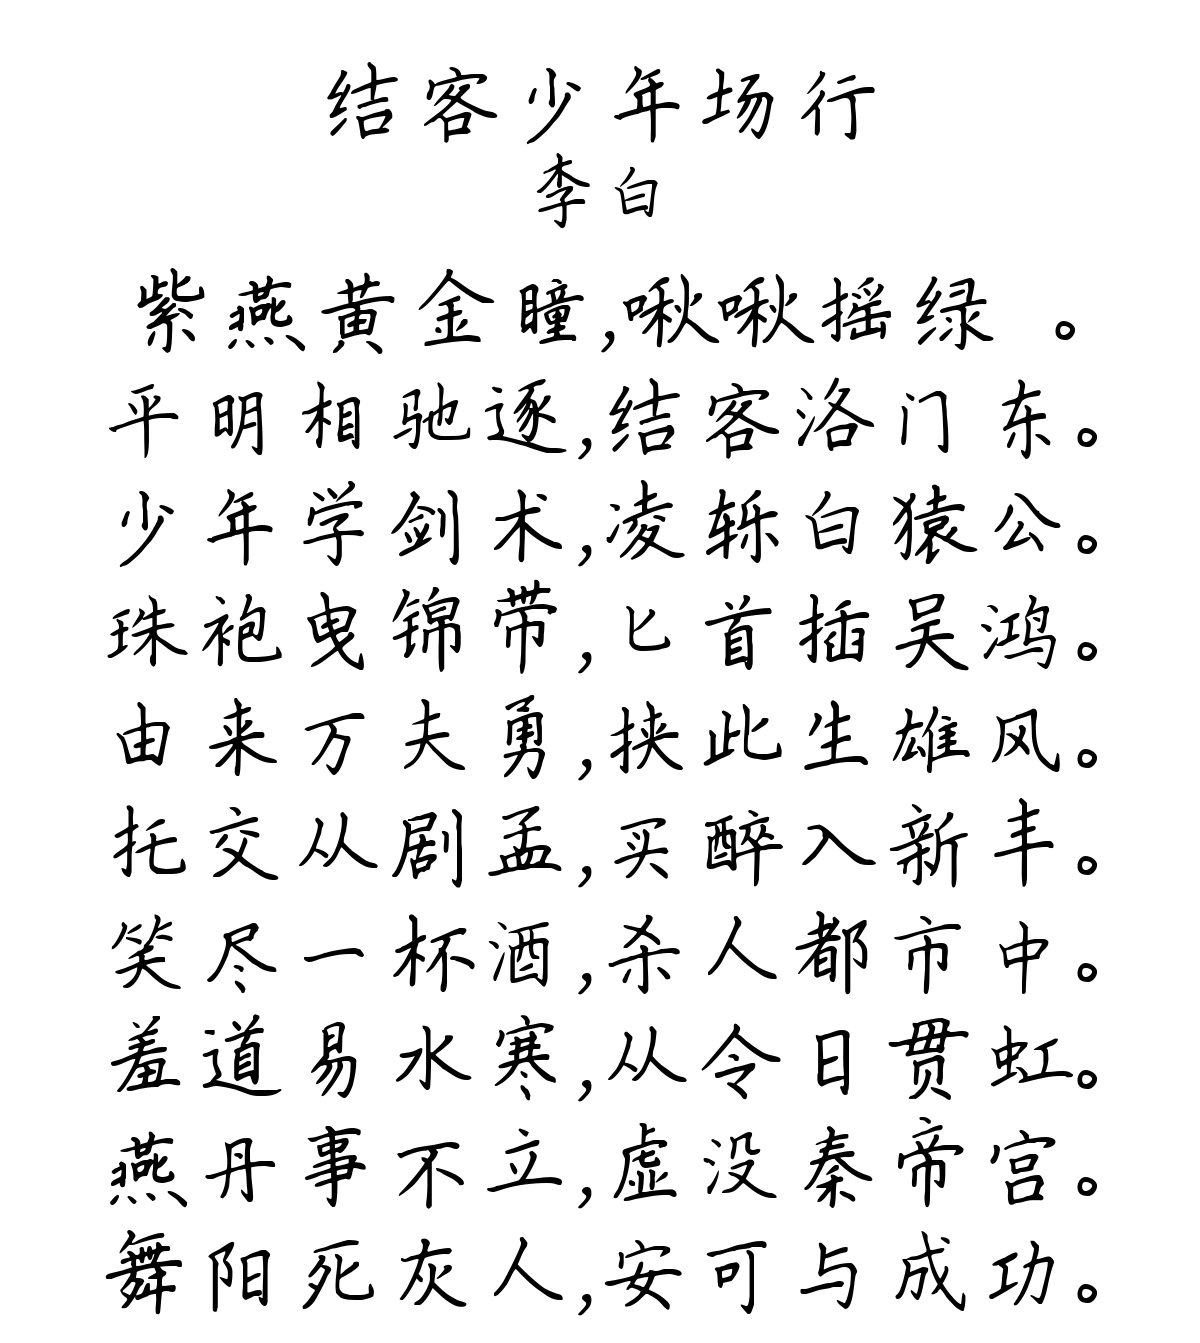 结客少年场行
李白
紫燕黄金瞳,啾啾摇绿 。
平明相驰逐,结客洛门东。
少年学剑术,凌轹白猿公。
珠袍曳锦带,匕首插吴鸿。
由来万夫勇,挟此生雄风。
托交从剧孟,买醉入新丰。
笑尽一杯酒,杀人都市中。
羞道易水寒,从令日贯虹。
燕丹事不立,虚没秦帝宫。
舞阳死灰人,安可与成功。